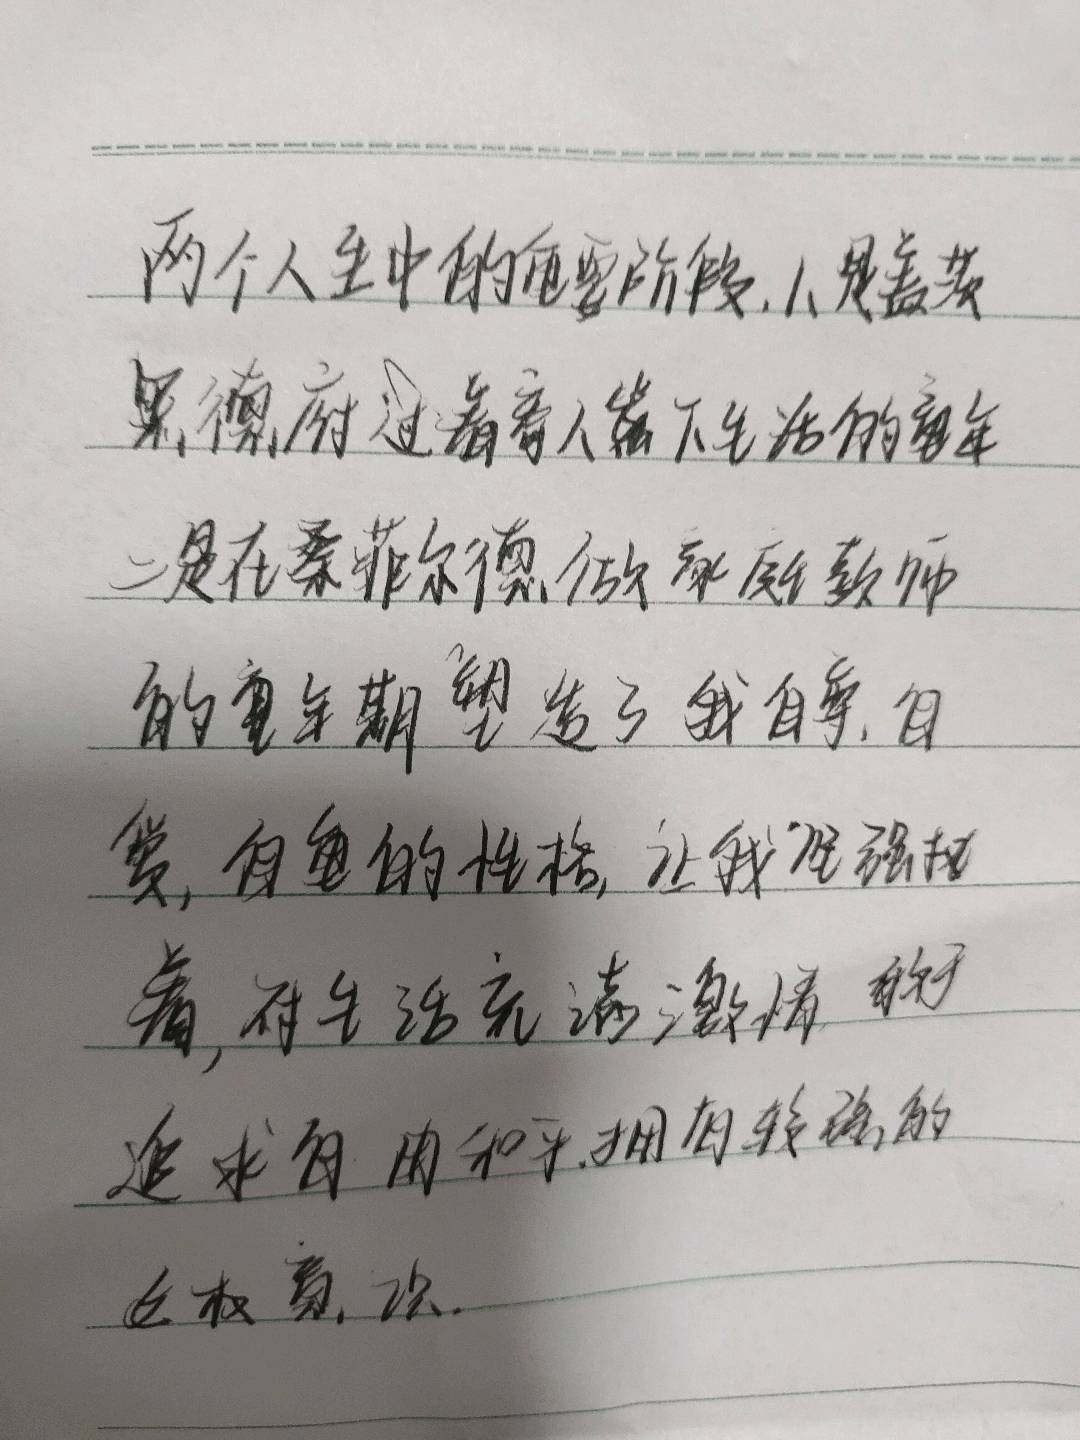 两个人生中的重要阶段.1、是盖茨
黑德府过着寄人篱下生活的童年
二是在桑菲尔德做家庭教师
的童年期塑造了我自尊.自
爱,自重的性格,让我坚强执
着,对生活充满激情 敢于
追求自由和平.拥有较强的
女权意识.